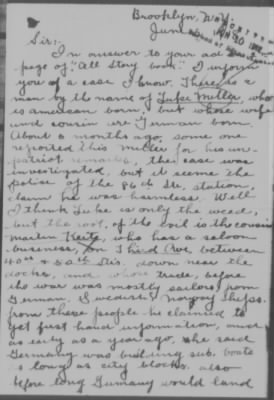 Brooklyn, N.Y.
June
Sir:-
In answer to your ad on
page of "All Story book" I inform
you of a case I know. There is a
man by the name of Luke Miller, who
is American born, but whose wife
and cousin are German born.
About 6 months ago, some one
reported this Miller for his un-
patriot remarks, the case was
investigated, but it seems the
police of the 86th Str. station,
claim he was harmless. Well
I think Luke is only the weed,
but the root, of the evil is the cousin
Martin, who has a saloon
buseness, on Third Ave, between
40th & 50th Sts. down near the
docks, and whose trade, before
the war was mostly sailors from
German, Swedish & Norway ships.
from these people he claimed to
get first hand information, and
as early as a year ago, he said
Germany was building sub. boats
as long as city blocks, also
before long Germany would land